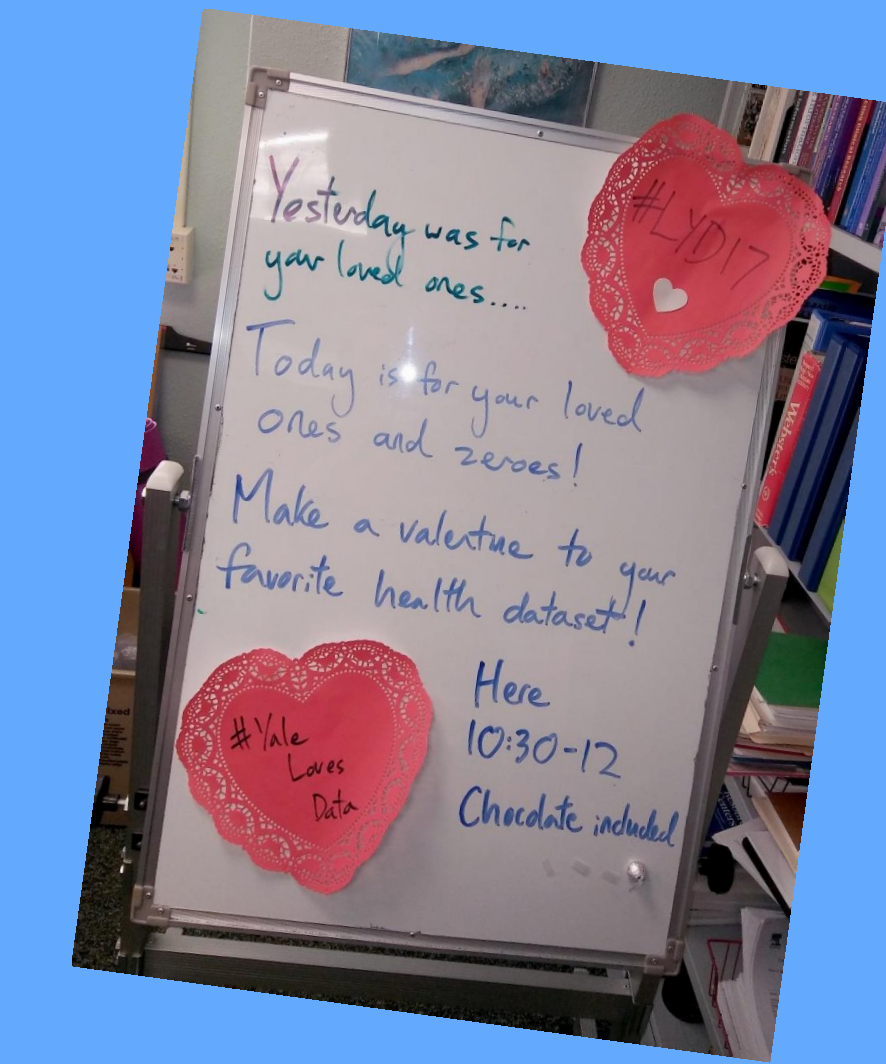 Yesterday was for
your loved ones....
#LYD17
Today is for your loved
ones and zeroes!
Make a valentine to your
favorite health dataset!
#Yale
Loves
Data
Here
10:30-12
Chocolate included
Webster's